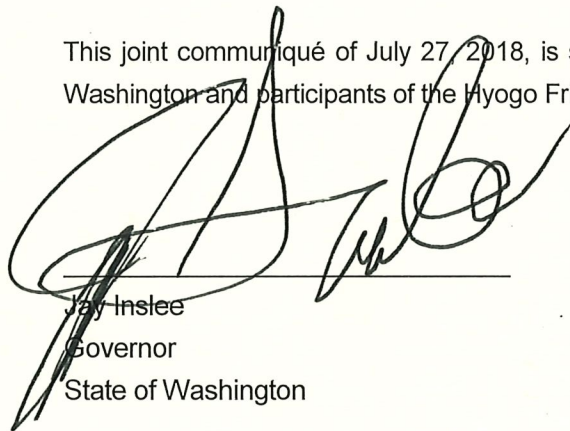 This joint communiqué of July 27, 2018, is
Washington and participants of the Hyogo Fr
Jay Inslee
Governor
State of Washington